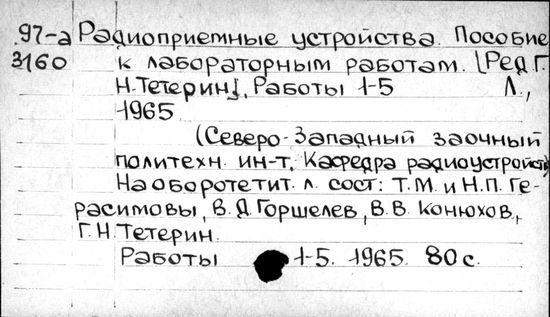 97-а Радиоприемные устройства. Пособие
3160 к лабораторным работам. [Ред. Г.
Н. Тетерин]. Работы 1-5 Л.,
1965
(Северо-Западный заочный
политехн. ин-т. Кафедра радиоустройств)
На обороте тит. л. сост.: Т.М. и Н.П. Ге-
расимовы, В.Д. Горшелев, В.В. Конюхов,
Г.Н. Тетерин.
Работы 1-5. 1965. 80 с.